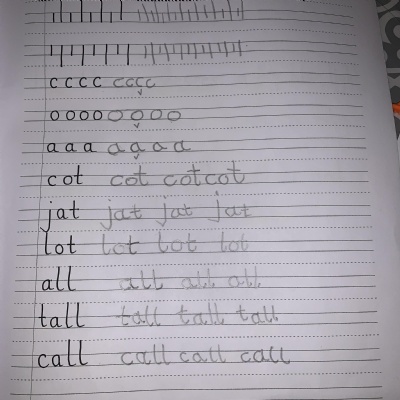 c c c c c c c c
o o o o o o o o
a a a a a a a
cot cot cot cot
jat jat jat jat
lot lot lot lot
all all all all
tall tall tall tall
call call call call